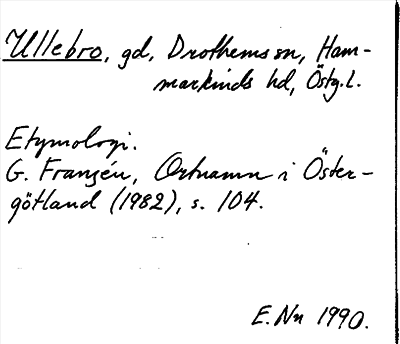 Ullebro, gd, Drothems sn, Ham-
markinds hd, Östg.l.
Etymologi.
G. Franzén, Ortnamn i Öster-
götland (1982), s. 104.
E. Nn 1990.